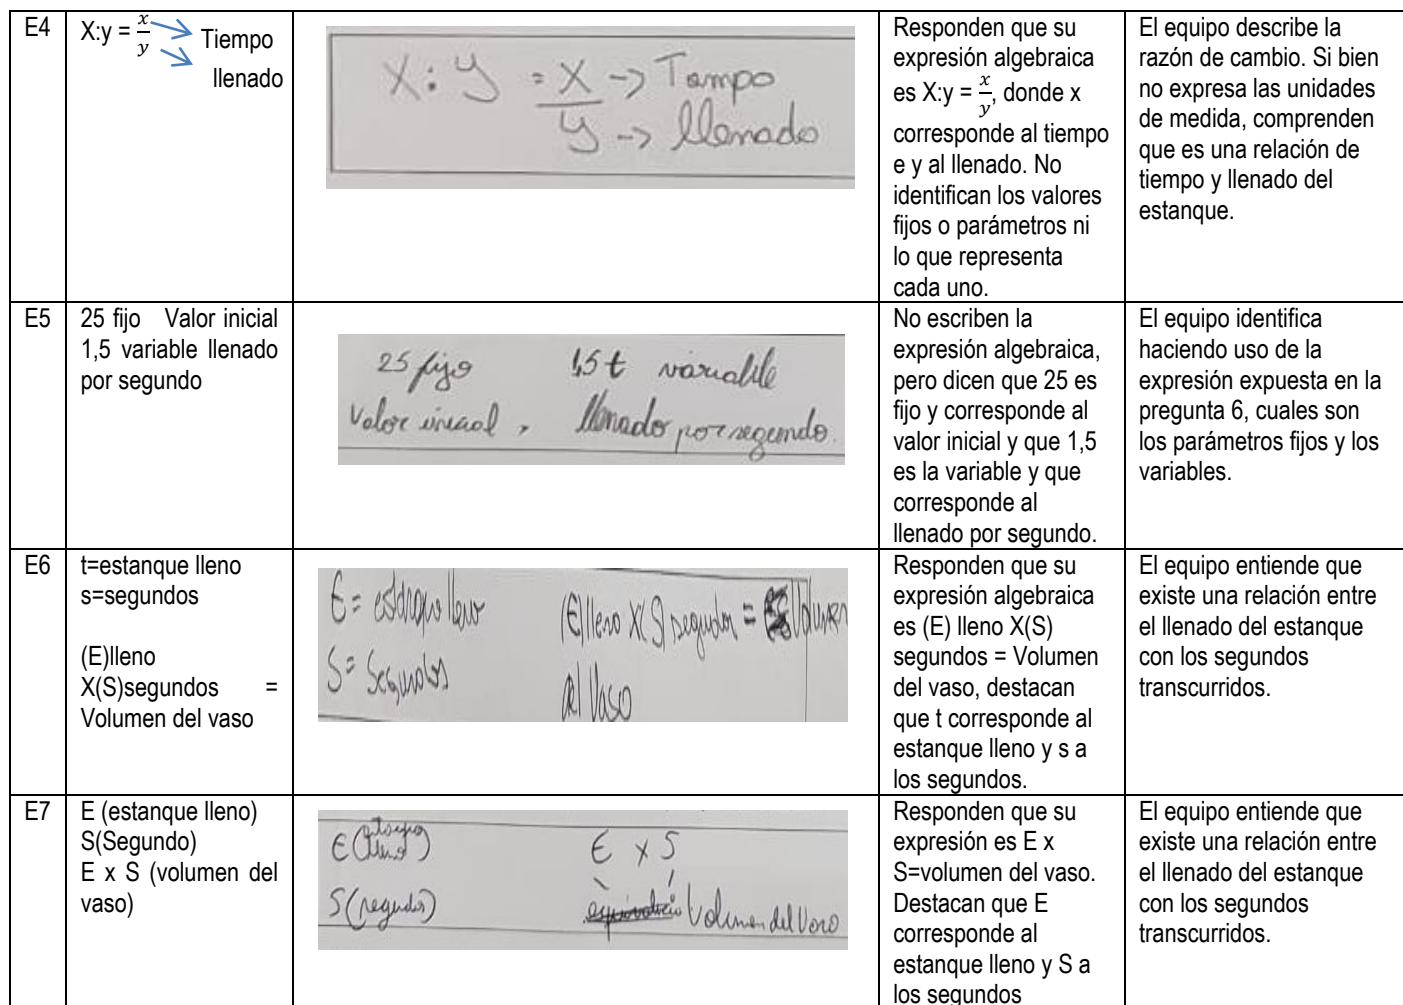 E4
X:y = x/y
Tiempo
llenado
X : y = X -> Tampo
y -> llenado
Responden que su
expresión algebraica
es X:y = x/y, donde x
corresponde al tiempo
e y al llenado. No
identifican los valores
fijos o parámetros ni
lo que representa
cada uno.
El equipo describe la
razón de cambio. Si bien
no expresa las unidades
de medida, comprenden
que es una relación de
tiempo y llenado del
estanque.
E5
25 fijo Valor inicial
1,5 variable llenado
por segundo
25 fijo 1,5 t variable
Valor inicial, llenado por segundo.
No escriben la
expresión algebraica,
pero dicen que 25 es
fijo y corresponde al
valor inicial y que 1,5
es la variable y que
corresponde al
llenado por segundo.
El equipo identifica
haciendo uso de la
expresión expuesta en la
pregunta 6, cuales son
los parámetros fijos y los
variables.
E6
t=estanque lleno
s=segundos
(E)lleno
X(S)segundos =
Volumen del vaso
E = estanque lleno (E)lleno X(S) segundos = Volumen
S = Segundos del Vaso
Responden que su
expresión algebraica
es (E) lleno X(S)
segundos = Volumen
del vaso, destacan
que t corresponde al
estanque lleno y s a
los segundos.
El equipo entiende que
existe una relación entre
el llenado del estanque
con los segundos
transcurridos.
E7
E (estanque lleno)
S(Segundo)
E x S (volumen del
vaso)
E (estanque lleno) E x S
S (segundos) Volumen del Vaso
Responden que su
expresión es E x
S=volumen del vaso.
Destacan que E
corresponde al
estanque lleno y S a
los segundos
El equipo entiende que
existe una relación entre
el llenado del estanque
con los segundos
transcurridos.